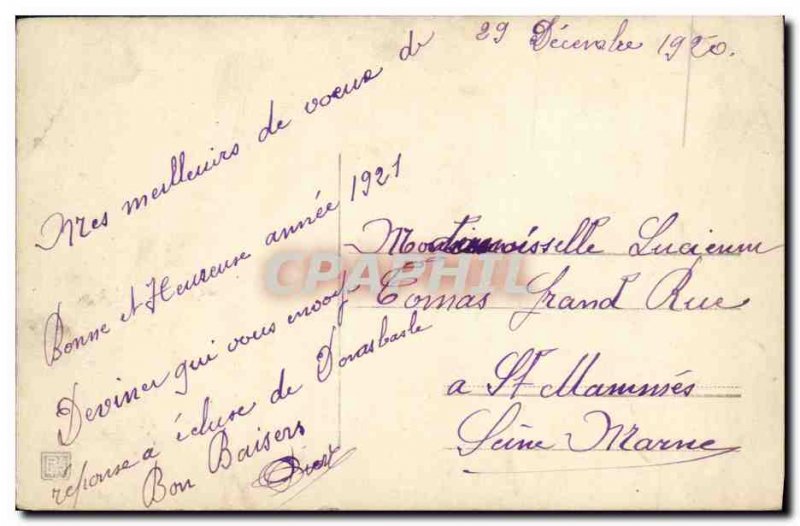 29 Décembre 1920.
Mes meilleurs de voeux de
Bonne et Heureuse année 1921
Deviner qui vous envoy
réponse a écluse de
Bon Baisers
Mademoisselle Lucienne
Tomas Grand Rue
a St Mammés
Seine Marne
CPAPHIL